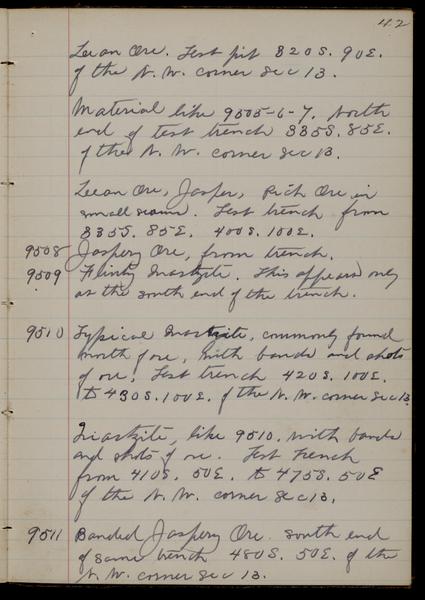 42
Lean Ore. Test pit 820S. 90E.
of the N. W. corner Sec 13.
Material like 9505-6-7. North
end of test trench 835S. 85E.
of the N. W. corner Sec 13.
Lean Ore, Jasper, Rich Ore in
small seams. Test trench from
835S. 85E. 400S. 100E.
9508 Jaspery Ore, from trench.
9509 Flinty Quartzite. This appears only
at the south end of the trench.
9510 Typical Quartzite, commonly found
north of ore, with bands and shots
of ore. Test trench 420S. 100E.
to 430S. 100E. of the N. W. corner Sec 13.
Quartzite, like 9510. with bands
and shots of ore. Test Trench
from 410S. 50E. to 475S. 50E
of the N. W. corner Sec 13.
9511 Banded Jaspery Ore. South end
of same trench 480S. 50E. of the
N. W. corner Sec 13.